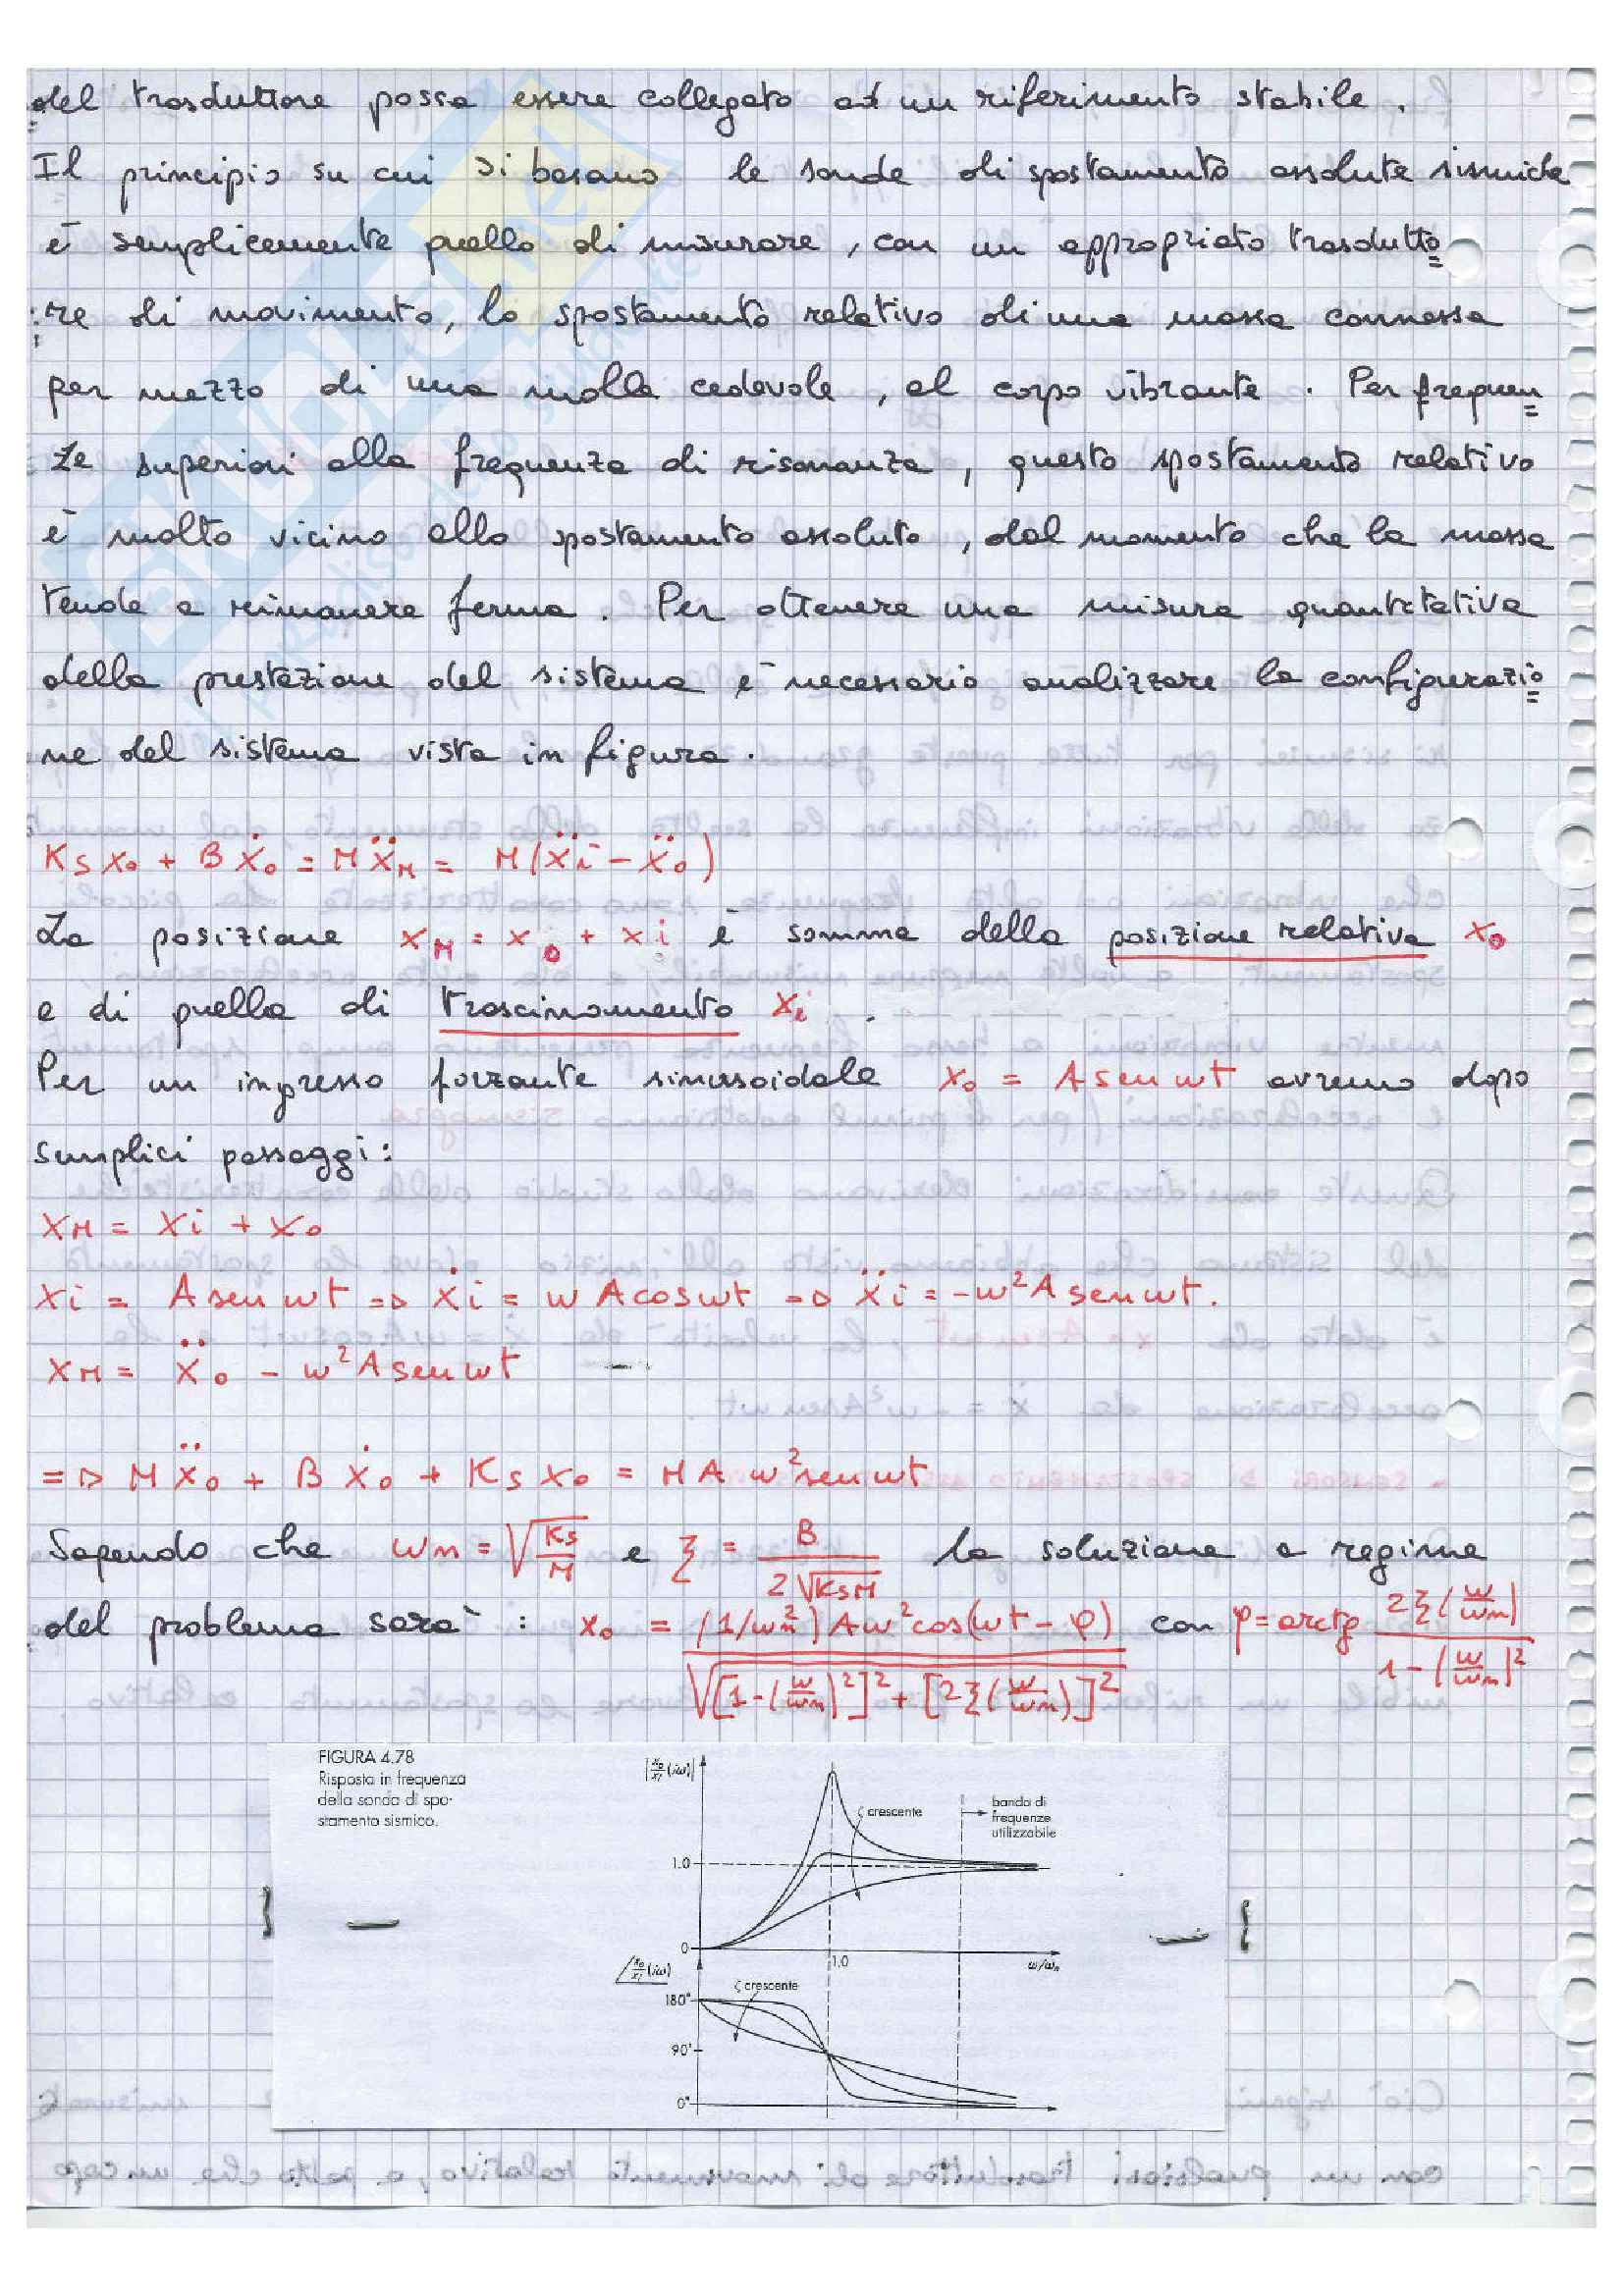 del trasduttore possa essere collegato ad un riferimento stabile.
Il principio su cui si basano le sonde di spostamento assolute sismiche
è semplicemente quello di misurare, con un appropriato trasdutto=
:re di movimento, lo spostamento relativo di una massa connessa
per mezzo di una molla cedevole, al corpo vibrante. Per frequen=
ze superiori alla frequenza di risonanza, questo spostamento relativo
è molto vicino allo spostamento assoluto, dal momento che la massa
tende a rimanere ferma. Per ottenere una misura quantitativa
della prestazione del sistema è necessario analizzare la configurazio=
ne del sistema vista in figura.
Ks x₀ + B ẋ₀ = M ẍ_M = M(ẍi - ẍ₀)
La posizione x_M = x₀ + xi è somma della posizione relativa x₀
e di quella di trascinamento xi.
Per un ingresso forzante sinusoidale x₀ = A sen ωt avremo dopo
semplici passaggi:
x_M = xi + x₀
xi = A sen ωt => ẋi = ω A cos ωt => ẍi = -ω² A sen ωt.
x_M = ẍ₀ - ω² A sen ωt
=> M ẍ₀ + B ẋ₀ + Ks x₀ = M A ω² sen ωt
Sapendo che ωn = √(Ks/M) e ξ = B/(2√(KsM)) la soluzione a regime
del problema sarà: x₀ = (1/ωn²) Aω² cos(ωt - φ) / √([1-(ω/ωn)²]² + [2ξ(ω/ωn)]²) con φ = arctg 2ξ(ω/ωn) / (1-(ω/ωn)²)
FIGURA 4.78
Risposta in frequenza
della sonda di spo-
stamento sismico.
|x₀/xi (iω)|
ζ crescente
banda di
frequenze
utilizzabile
1.0
0
1.0
ω/ωn
∠x₀/xi (iω)
ζ crescente
180°
90°
0°